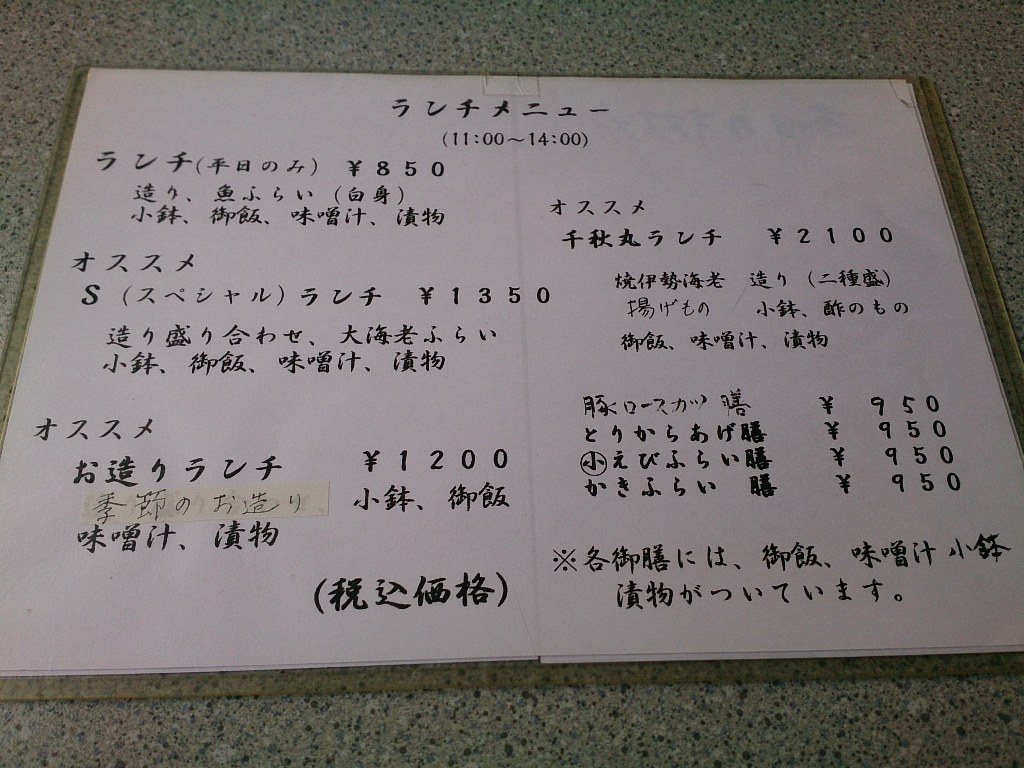 ランチメニュー
(11:00～14:00)
ランチ(平日のみ) ￥850
造り、魚ふらい（白身）
小鉢、御飯、味噌汁、漬物
オススメ
S（スペシャル）ランチ ￥1350
造り盛り合わせ、大海老ふらい
小鉢、御飯、味噌汁、漬物
オススメ
お造りランチ ￥1200
季節のお造り 小鉢、御飯
味噌汁、漬物
(税込価格)
オススメ
千秋丸ランチ ￥2100
焼伊勢海老 造り（二種盛）
揚げもの 小鉢、酢のもの
御飯、味噌汁、漬物
豚ロースカツ膳 ￥950
とりからあげ膳 ￥950
小えびふらい膳 ￥950
かきふらい 膳 ￥950
※各御膳には、御飯、味噌汁 小鉢
漬物がついています。